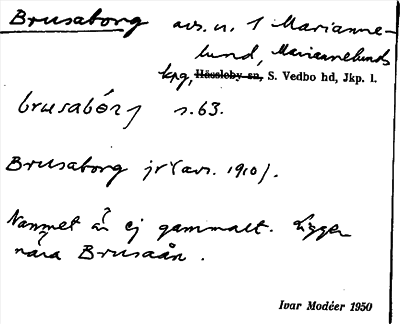 Brusaborg avs. u. 1 Marianne-
lund, Mariannelunds
kpg, Hässleby sn, S. Vedbo hd, Jkp. l.
brusabórj s. 63.
Brusaborg jr (avs. 1910).
Namnet är ej gammalt. Ligger
nära Brusaån.
Ivar Modéer 1950